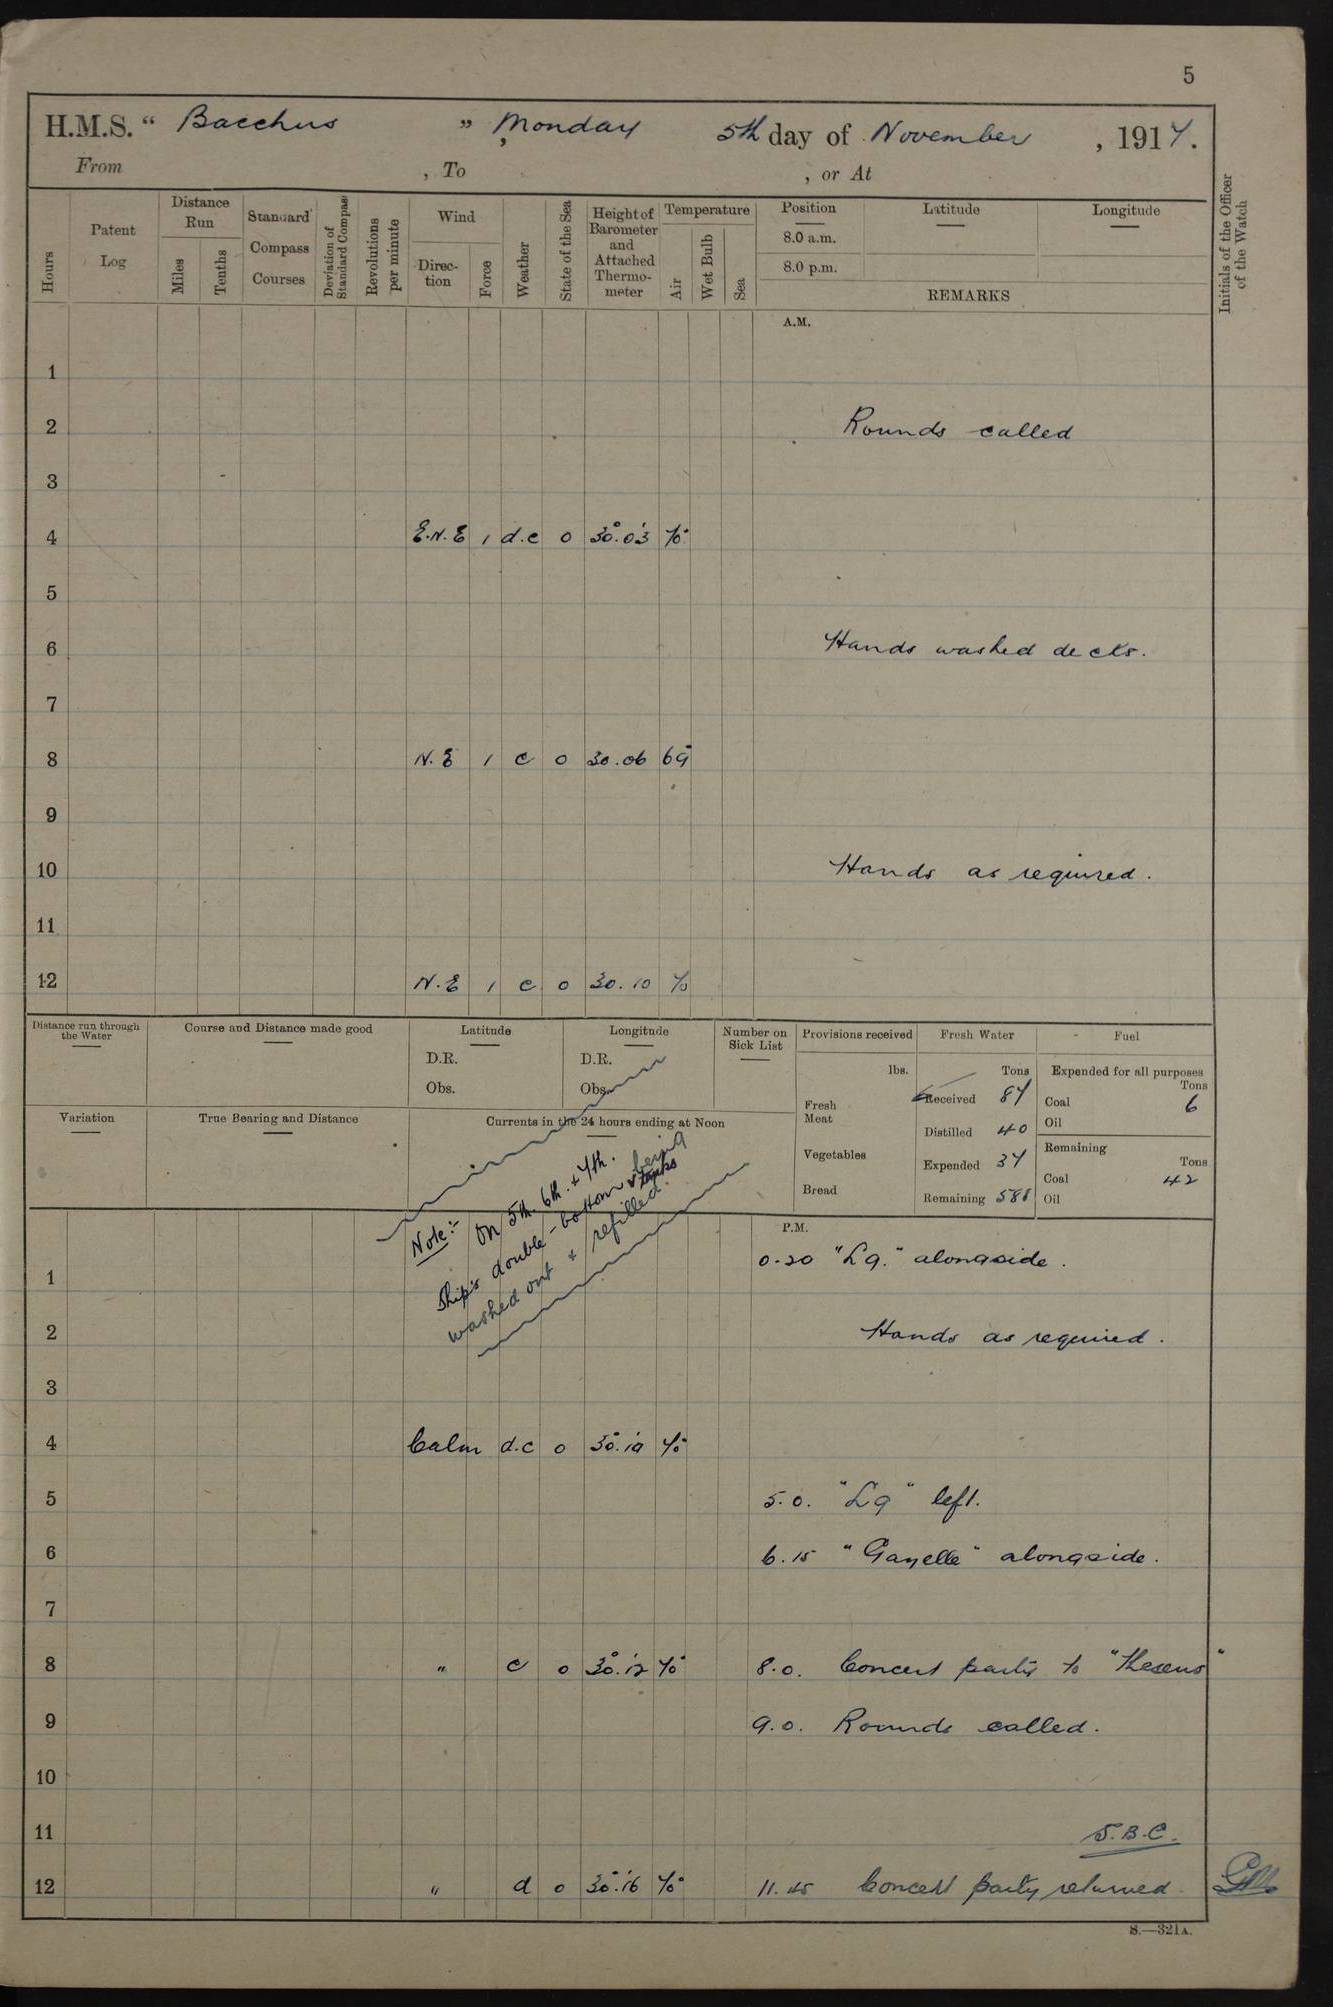 5
H.M.S. “ Bacchus ” , Monday 5th day of November , 1917.
From , To , or At
Hours
Patent Log
Distance Run
Miles
Tenths
Standard Compass Courses
Deviation of Standard Compass
Revolutions per minute
Wind
Direc-tion
Force
Weather
State of the Sea
Height of Barometer and Attached Thermo-meter
Temperature
Air
Wet Bulb
Sea
Position
Latitude
Longitude
8.0 a.m.
8.0 p.m.
REMARKS
Initials of the Officer of the Watch
A.M.
1
2 Rounds called
3
4 E.N.E 1 d.c 0 30.03 70
5
6 Hands washed decks.
7
8 N.E 1 c 0 30.06 69
9
10 Hands as required.
11
12 N.E 1 c 0 30.10 70
Distance run through the Water
Course and Distance made good
Latitude
Longitude
Number on Sick List
Provisions received
Fresh Water
Fuel
D.R. D.R.
Obs. Obs.
lbs.
Tons
Expended for all purposes
Tons
Fresh Meat
Received 87
Coal 6
Oil
Variation
True Bearing and Distance
Currents in the 24 hours ending at Noon
Distilled 40
Remaining
Tons
Vegetables
Expended 37
Coal 42
Bread
Remaining
Oil
Note:- On 5th. 6th. & 7th.
Ship's double-bottom & tanks being
washed out & refilled.
P.M.
0.20 "Lq." alongside.
1
2 Hands as required.
3
4 Calm d.c 0 30.10 70
5 5.0. "Lq" left.
6 6.15 "Gazelle" alongside.
7
8 " c 0 30.12 70 8.0. Concert party to "Theseus"
9 9.0. Rounds called.
10
11 S.B.C.
12 " d 0 30.16 70 11.45 Concert party returned
S.—321A.